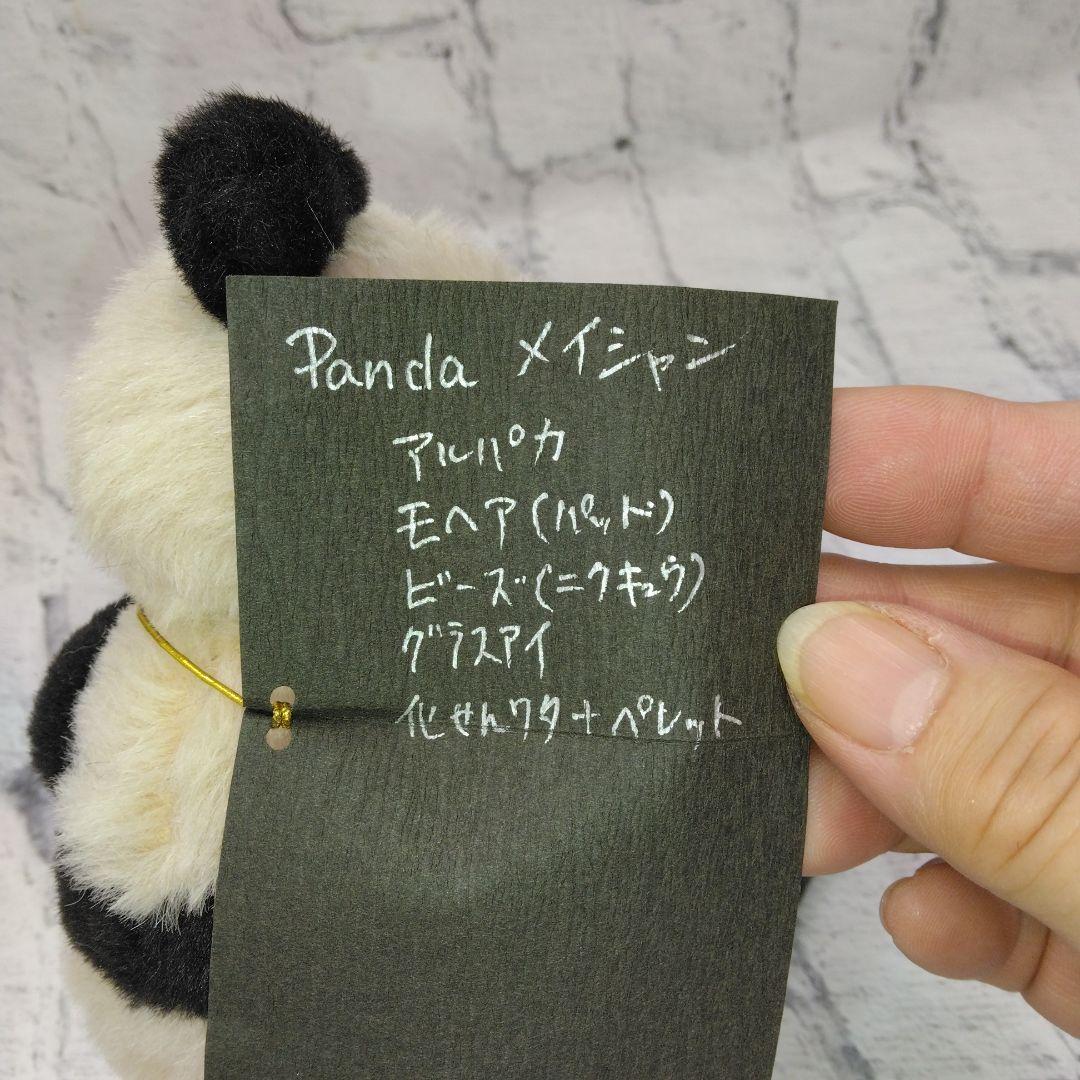 Panda メイシャン
アルパカ
モヘア(パッド)
ビーズ(ニクキュウ)
グラスアイ
化せんワタ+ペレット